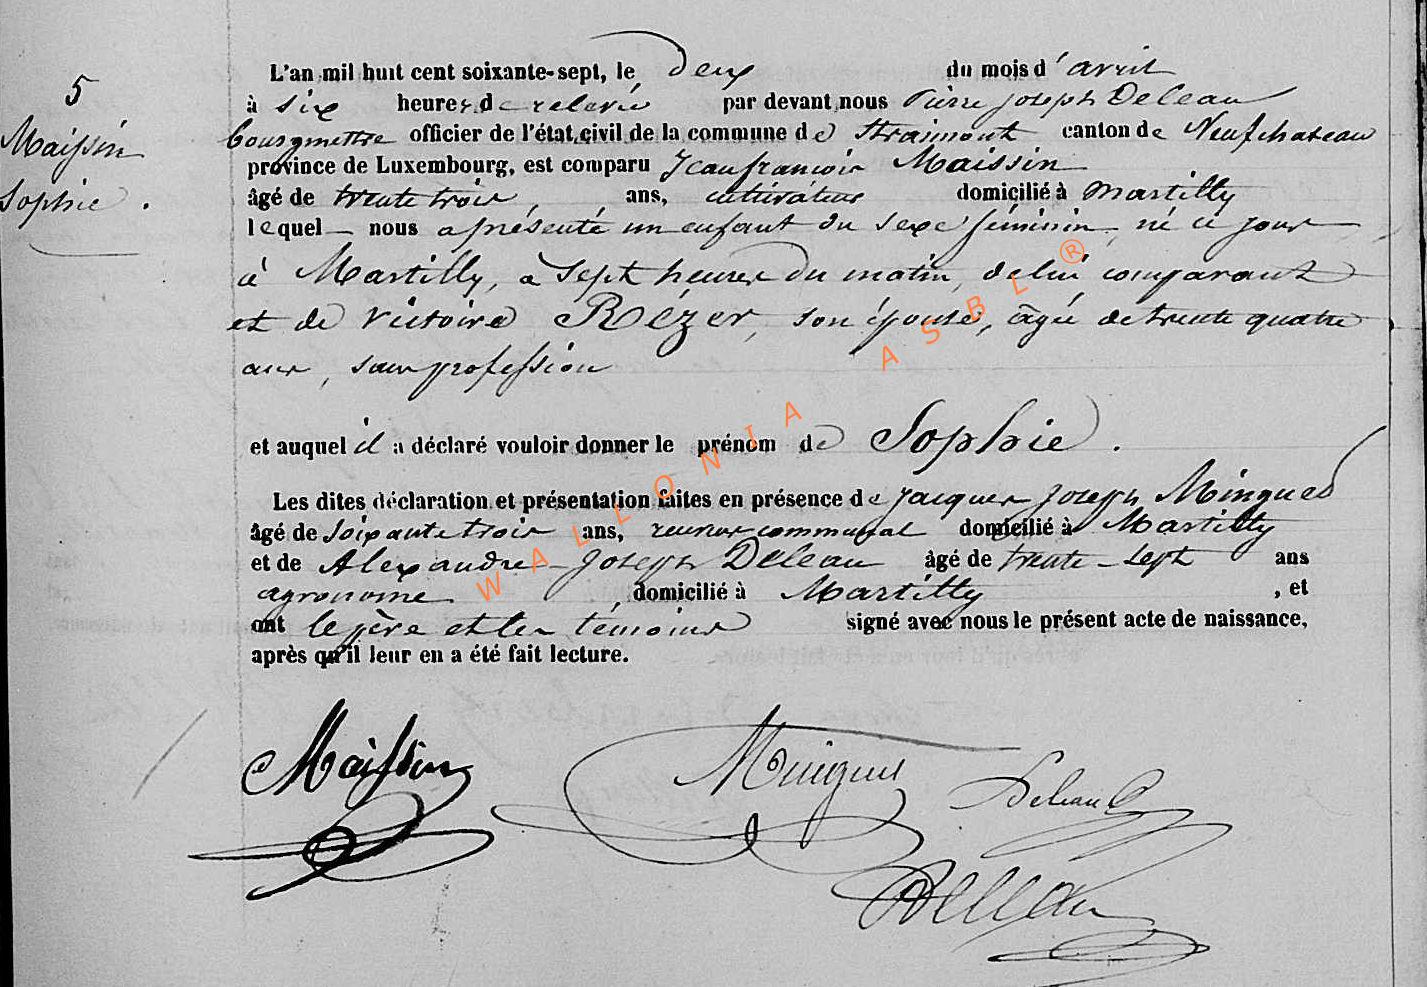 5
Maissin
Sophie.
L'an mil huit cent soixante-sept, le deux du mois d'avril
à six heures de relevée par devant nous Pierre Joseph Deleau
bourgmestre officier de l'état civil de la commune de Straimont canton de Neufchateau
province de Luxembourg, est comparu Jean françois Maissin
âgé de trente trois, ans, cultivateur domicilié à Martilly
lequel nous a présenté un enfant du sexe féminin, né ce jour
à Martilly, à sept heures du matin, de lui comparant
et de Victoire Rézer, son épouse, âgée de trente quatre
ans, sans profession
et auquel il a déclaré vouloir donner le prénom de Sophie.
Les dites déclaration et présentation faites en présence de Jacques Joseph Mingues
âgé de soixante trois ans, communal domicilié à Martilly
et de Alexandre Joseph Deleau âgé de trente-sept ans
agronome, domicilié à Martilly, et
ont le père et les témoins signé avec nous le présent acte de naissance,
après qu'il leur en a été fait lecture.
Maissin Mingues Deleau
Deleau
WALLONIA ASBL ®